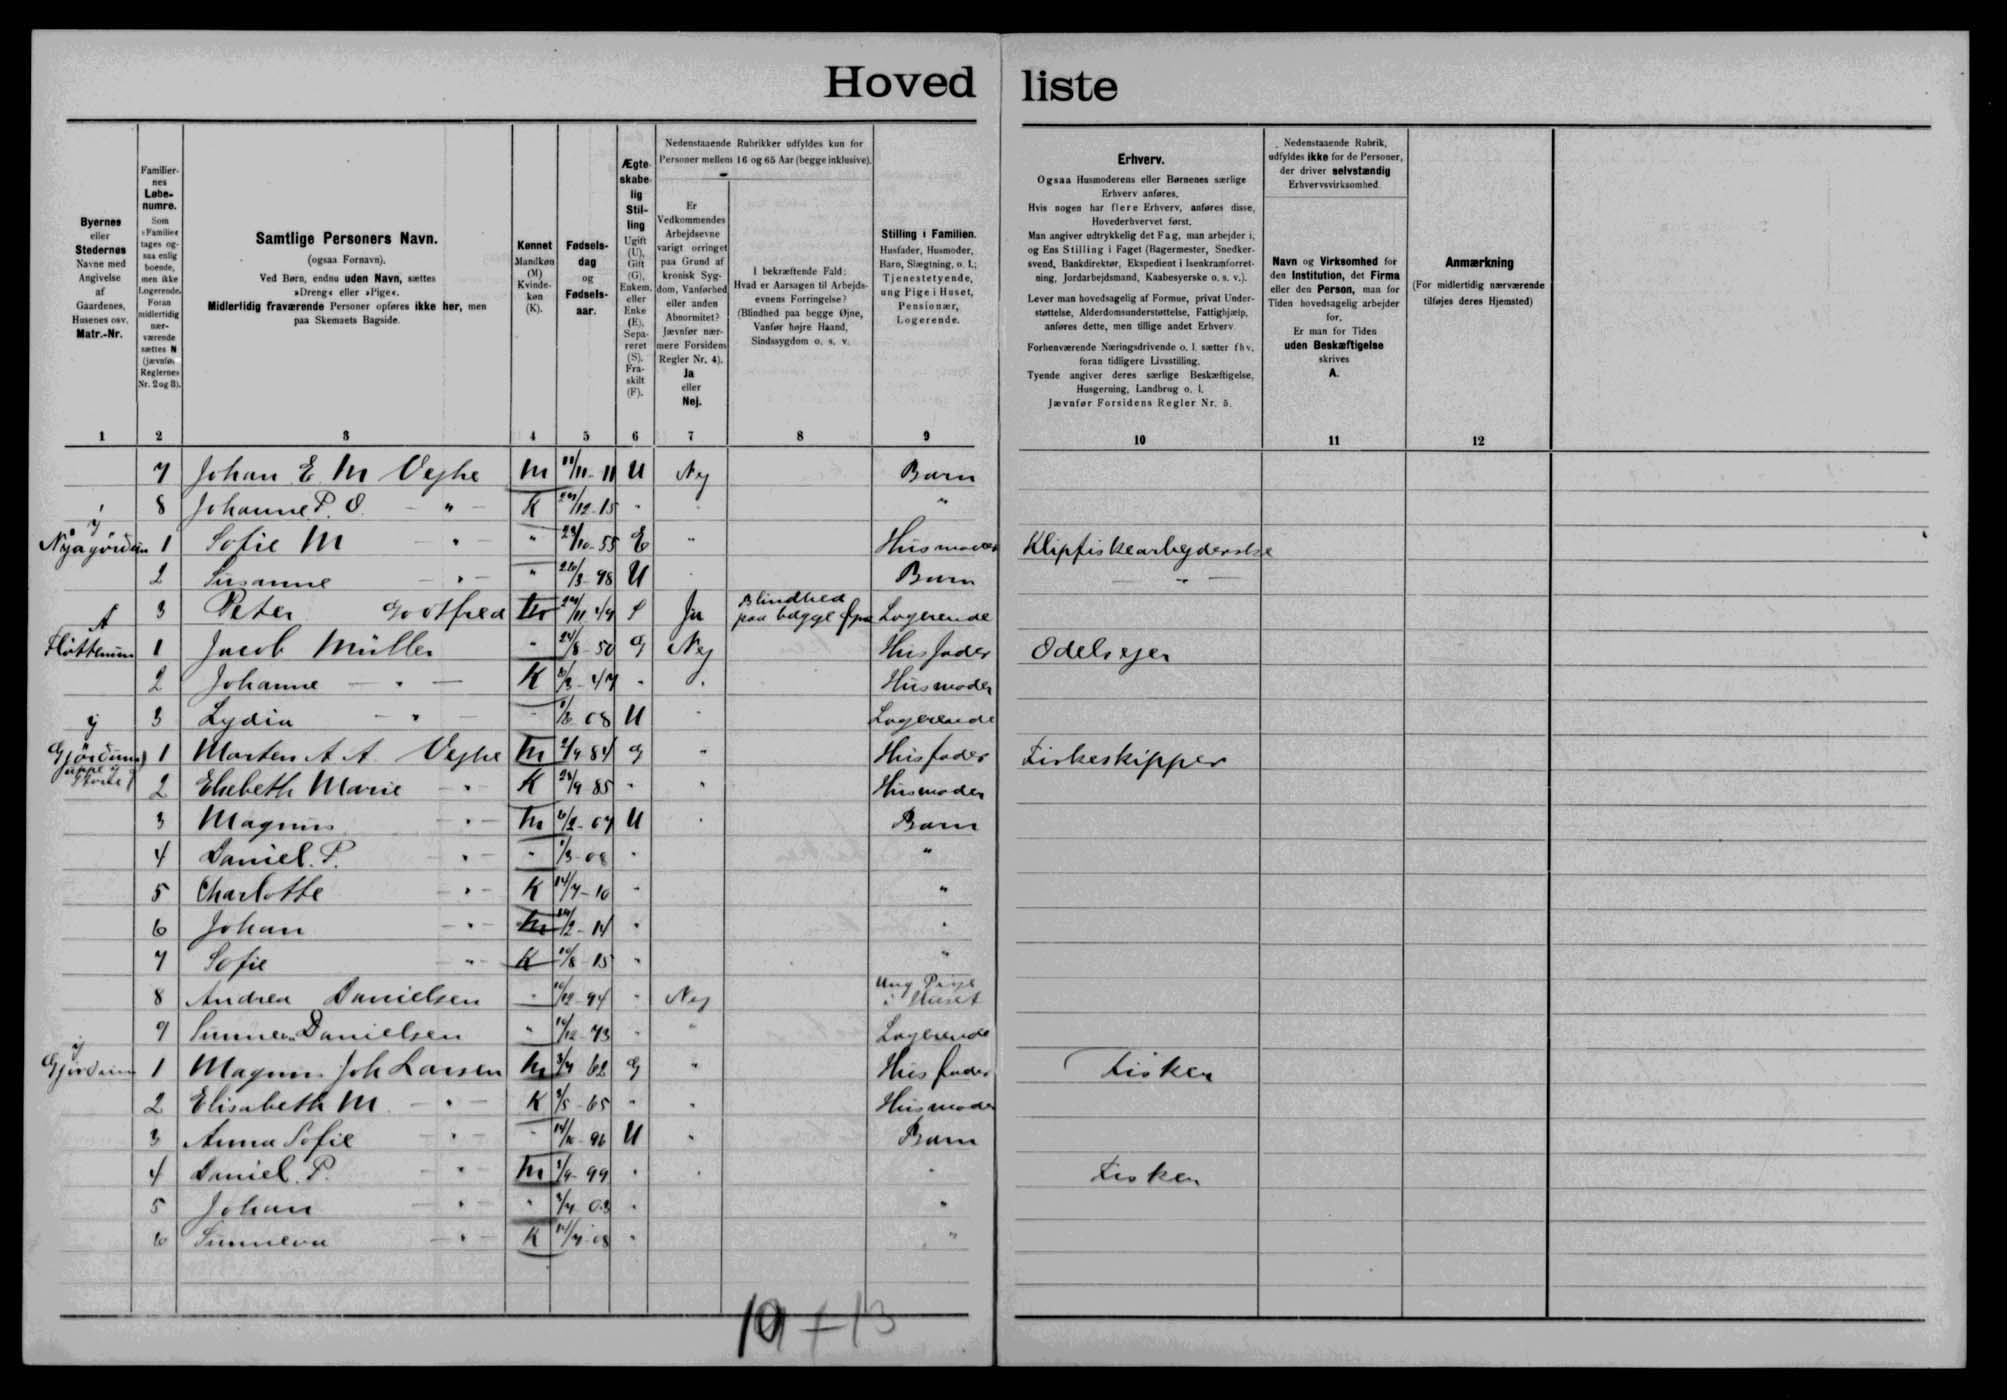 Hovedliste
Byernes
eller
Stedernes
Navne med
Angivelse
af
Gaardenes,
Husenes osv.
Matr.-Nr.
Familier-
nes
Løbe-
numre.
Som
»Familie«
tages og-
saa enlig
boende,
men ikke
Logerende.
Foran
midlertidig
nær-
værende
sættes N
(jævnfør
Reglernes
Nr. 2 og 3).
Samtlige Personers Navn.
(ogsaa Fornavn).
Ved Børn, endnu uden Navn, sættes
»Dreng« eller »Pige«.
Midlertidig fraværende Personer opføres ikke her, men
paa Skemaets Bagside.
Kønnet
Mandkøn
(M)
Kvinde-
køn
(K).
Fødsels-
dag
og
Fødsels-
aar.
Ægte-
skabe-
lig
Stil-
ling
Ugift
(U),
Gift
(G),
Enkem.
eller
Enke
(E),
Sepa-
reret
(S).
Fra-
skilt
(F).
Nedenstaaende Rubrikker udfyldes kun for
Personer mellem 16 og 65 Aar (begge inklusive).
Er
Vedkommendes
Arbejdsevne
varigt orringet
paa Grund af
kronisk Syg-
dom, Vanførhed
eller anden
Abnormitet?
Jævnfør nær-
mere Forsidens
Regler Nr. 4).
Ja
eller
Nej.
I bekræftende Fald:
Hvad er Aarsagen til Arbejds-
evnens Forringelse?
(Blindhed paa begge Øjne,
Vanfør højre Haand,
Sindssygdom o. s. v.
Stilling i Familien.
Husfader, Husmoder,
Barn, Slægtning, o. l.;
Tjenestetyende,
ung Pige i Huset,
Pensionær,
Logerende.
Erhverv.
Ogsaa Husmoderens eller Børnenes særlige
Erhverv anføres.
Hvis nogen har flere Erhverv, anføres disse,
Hovederhvervet først.
Man angiver udtrykkelig det Fag, man arbejder i,
og Ens Stilling i Faget (Bagermester, Snedker-
svend, Bankdirektør, Ekspedient i Isenkramforret-
ning, Jordarbejdsmand, Kaabesyerske o. s. v.).
Lever man hovedsagelig af Formue, privat Under-
støttelse, Alderdomsunderstøttelse, Fattighjælp,
anføres dette, men tillige andet Erhverv.
Forhenværende Næringsdrivende o. l. sætter fhv.
foran tidligere Livsstilling.
Tyende angiver deres særlige Beskæftigelse,
Husgerning, Landbrug o. l.
Jævnfør Forsidens Regler Nr. 5.
Nedenstaaende Rubrik,
udfyldes ikke for de Personer,
der driver selvstændig
Erhvervsvirksomhed.
Navn og Virksomhed for
den Institution, det Firma
eller den Person, man for
Tiden hovedsagelig arbejder
for.
Er man for Tiden
uden Beskæftigelse
skrives
A.
Anmærkning
(For midlertidig nærværende
tilføjes deres Hjemsted)
1 2 3 4 5 6 7 8 9 10 11 12
7 Johan E. M Vejhe M 11/11-11 U Nej Barn
8 Johanne P. O. - " - K /12-15 " "
1 Sofie M - " - " /10-55 E " Husmoder Klipfiskearbejderske
2 Susanne - " - " 26/3-98 U Barn - " -
3 Peter Gottfred M /11 49 S Ja Blindhed paa begge Logerende
1 Jacob Müller " 24/8-50 G Nej Husfader Odelsejer
2 Johanne - " - K /3-47 " " Husmoder
3 Lydia - " - " /8 08 U " Logerende
1 Morten A. A. Vejhe M 2/4 84 G " Husfader Fiskeskipper
2 Elsebeth Marie - " - K /9 85 " " Husmoder
3 Magnus - " - M 6/2-07 U " Barn
4 Daniel. P. - " - " 1/3-08 " "
5 Charlotte - " - K 14/7-10 " "
6 Johan - " - M /2-14 " "
7 Sofie - " - K /8 15 " "
8 Andrea Danielsen " /12-94 " Nej Ung Pige i Huset
9 Danielsen " /12-73 " " Logerende
1 Magnus Joh Larsen M 3/7 62 G " Husfader Fisker
2 Elisabeth M. - " - K /5-65 " " Husmoder
3 Anna Sofie - " - " 14/10-96 U " Barn
4 Daniel. P. - " - M /9-99 " " " Fisker
5 Johan - " - " 03 " "
6 Sunneva - " - K 08 " "